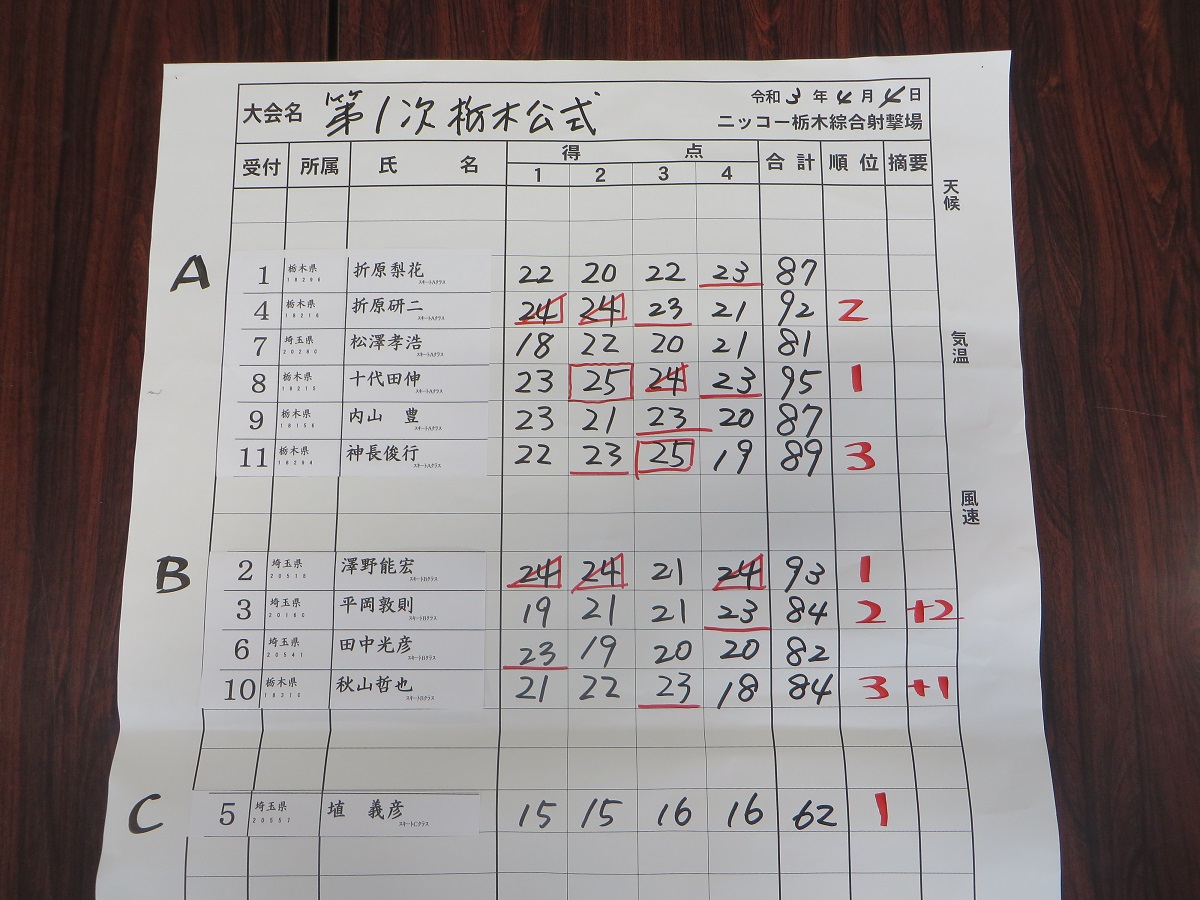 大会名 第1次栃木公式 令和3年4月4日
ニッコー栃木綜合射撃場
受付 所属 氏名 得点 合計 順位 摘要
1 2 3 4
天候
気温
風速
A
1 栃木県 折原梨花 スキートAクラス 22 20 22 23 87
4 栃木県 折原研二 スキートAクラス 24 24 23 21 92 2
7 埼玉県 松澤孝浩 スキートAクラス 18 22 20 21 81
8 栃木県 十代田伸 スキートAクラス 23 25 24 23 95 1
9 栃木県 内山 豊 スキートAクラス 23 21 23 20 87
11 栃木県 神長俊行 スキートAクラス 22 23 25 19 89 3
B
2 埼玉県 澤野能宏 スキートBクラス 24 24 21 24 93 1
3 埼玉県 平岡敦則 スキートBクラス 19 21 21 23 84 2 +2
6 埼玉県 田中光彦 スキートBクラス 23 19 20 20 82
10 栃木県 秋山哲也 スキートBクラス 21 22 23 18 84 3 +1
C
5 埼玉県 埴 義彦 スキートCクラス 15 15 16 16 62 1